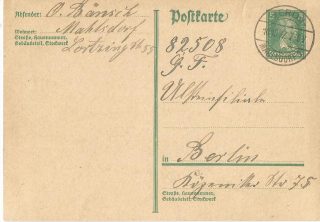 Absender: O. Bänsch
Mahlsdorf
Wohnort:
Straße, Hausnummer,
Gebäudeteil, Stockwerk
Lortzingstr 55
Postkarte
82508
G. F.
Ullsteinfiliale
in
Berlin
Köpenicker Str 75
Straße, Hausnummer,
Gebäudeteil, Stockwerk